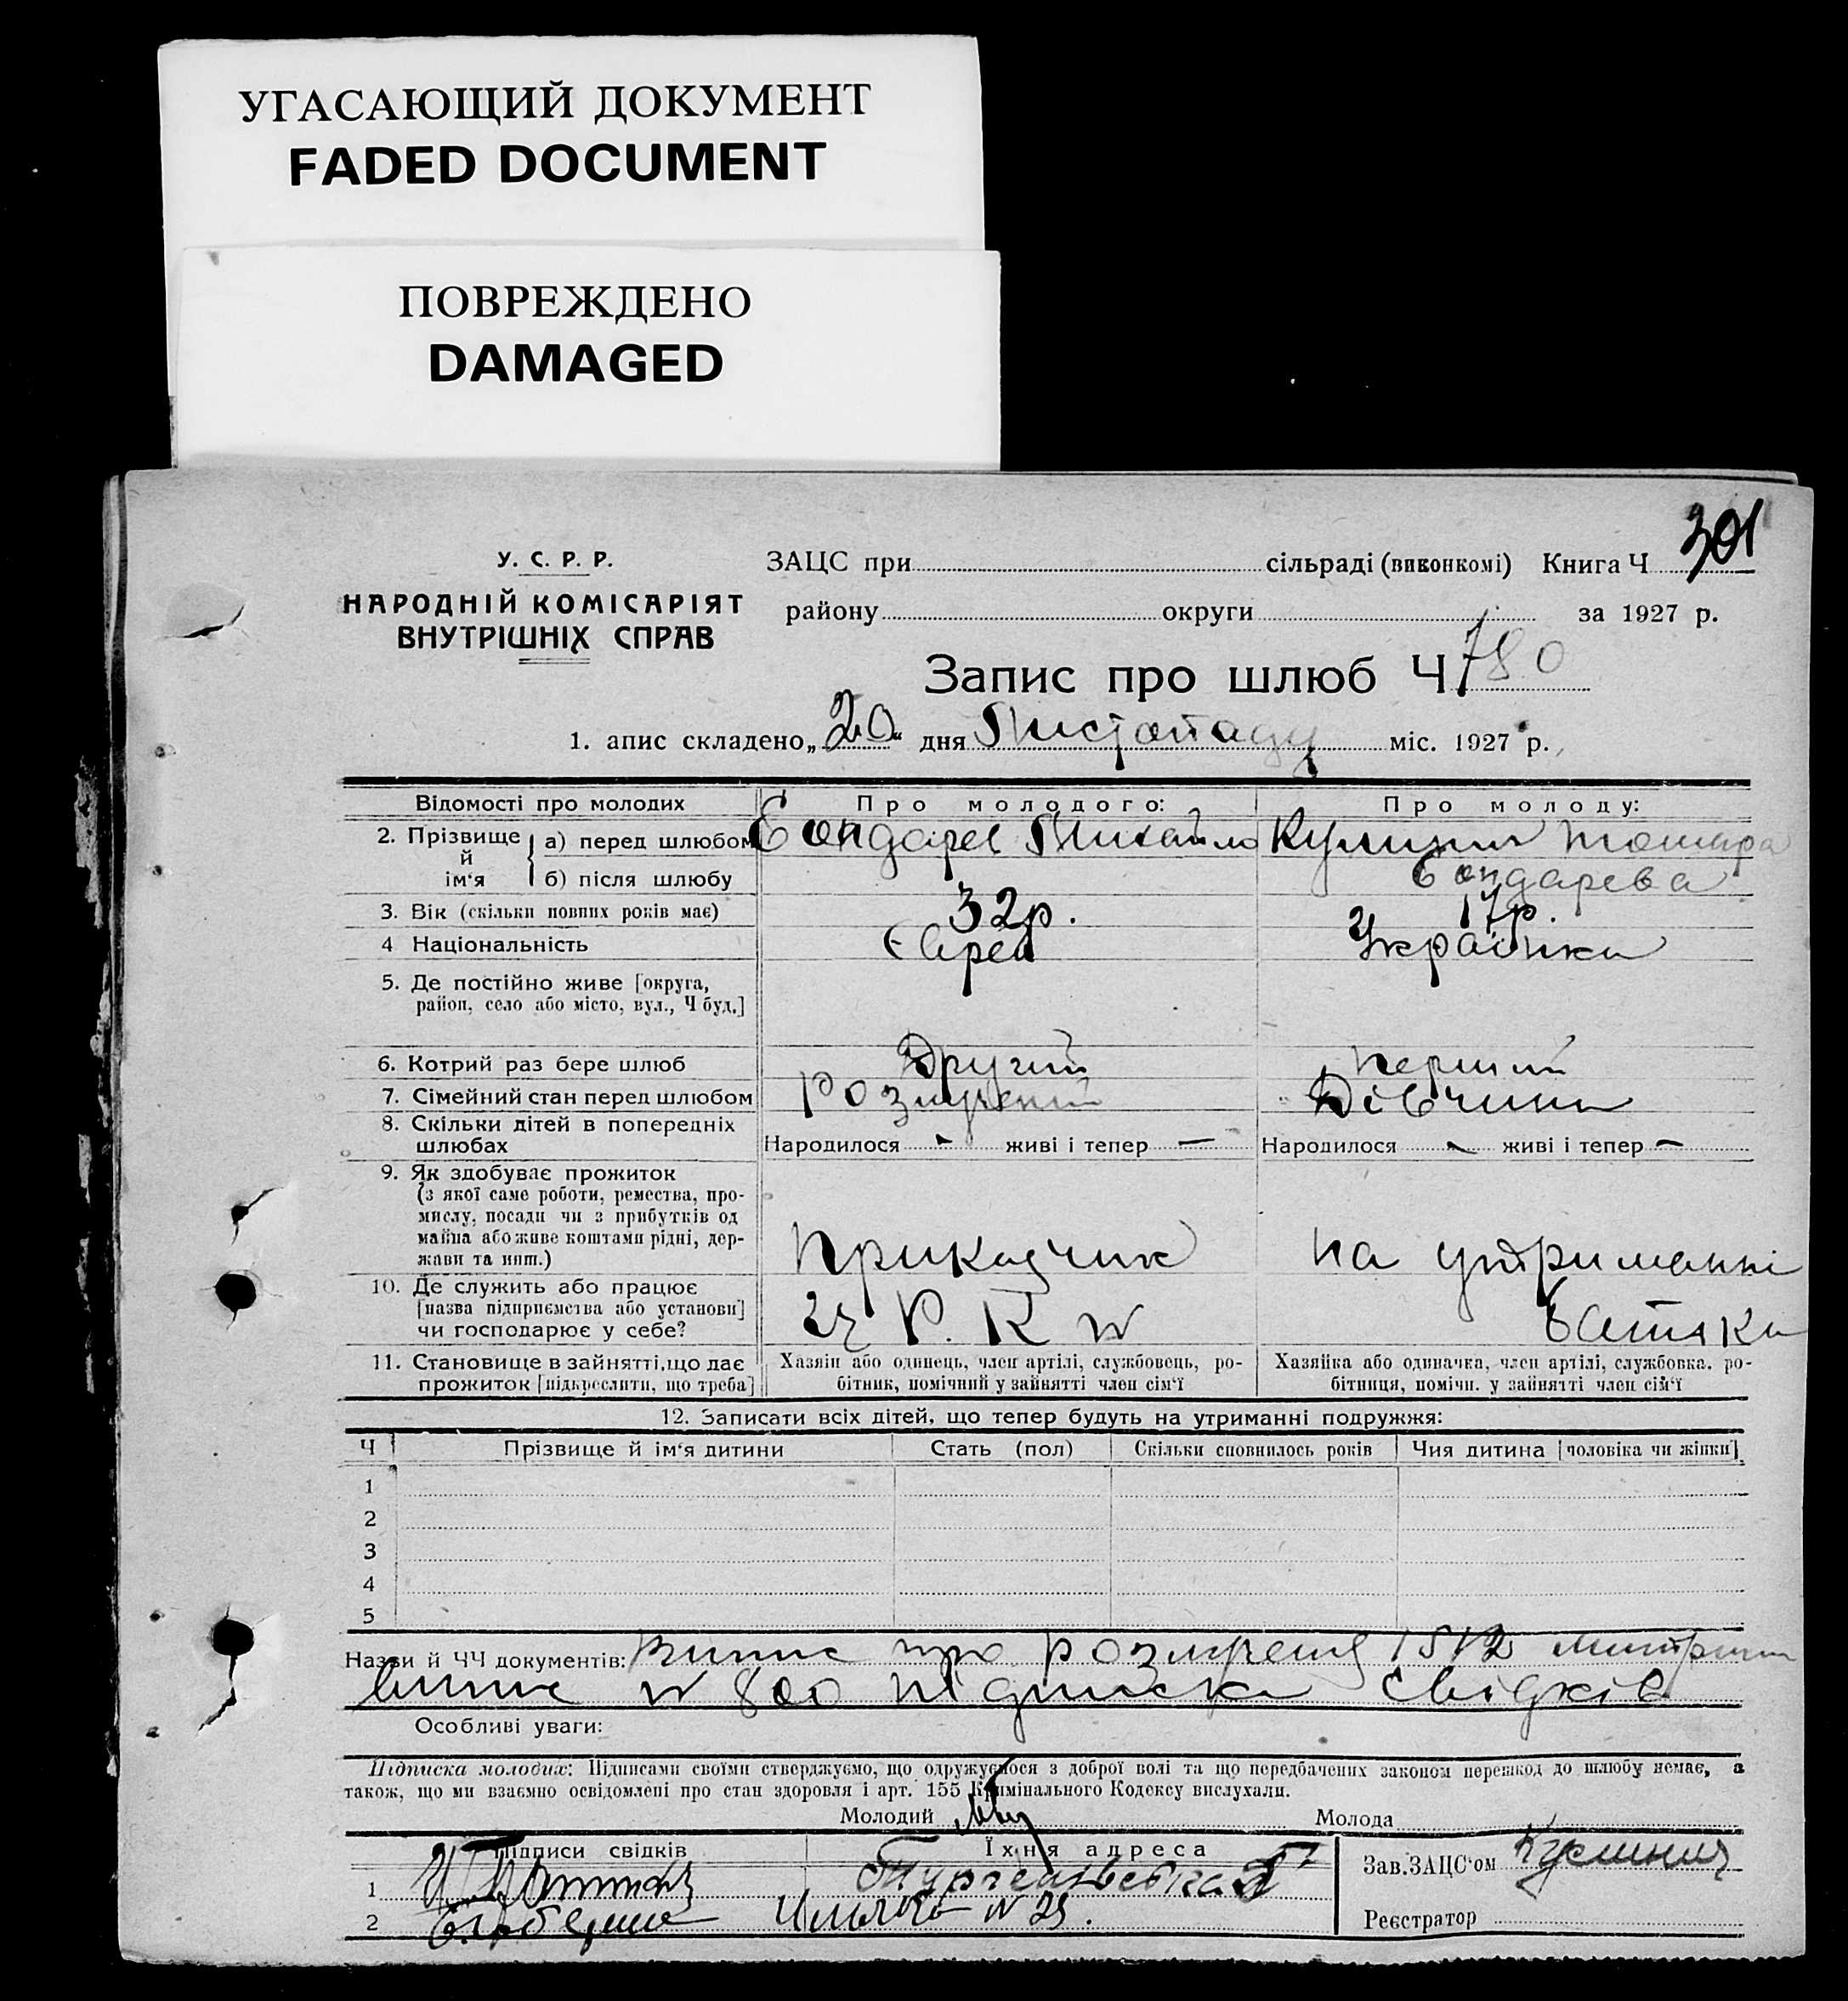 УГАСАЮЩИЙ ДОКУМЕНТ
FADED DOCUMENT
ПОВРЕЖДЕНО
DAMAGED
301
У. С. Р. Р.
НАРОДНІЙ КОМІСАРІЯТ
ВНУТРІШНІХ СПРАВ
ЗАЦС при сільраді (виконкомі) Книга Ч
району округи за 1927 р.
Запис про шлюб Ч 780
1. апис складено „20“ дня Листопаду міс. 1927 р.
Відомості про молодих Про молодого: Про молоду:
2. Прізвище й ім‘я
а) перед шлюбом Бондарев Михайло Тамара
б) після шлюбу Бондарева
3. Вік (скільки повних років має) 32р. 17р.
4 Національність Єврей Українка
5. Де постійно живе [округа,
район, село або місто, вул., Ч буд.]
6. Котрий раз бере шлюб Другий Перший
7. Сімейний стан перед шлюбом Розлучений Дівчина
8. Скільки дітей в попередніх
шлюбах Народилося - живі і тепер — Народилося - живі і тепер —
9. Як здобуває прожиток
(з якої саме роботи, ремества, про-
мислу, посади чи з прибутків од
майна або живе коштами рідні, дер-
жави та инш.) Приказчик на утриманні
10. Де служить або працює
[назва підприємства або установи]
чи господарює у себе? Ц Р. К батька
11. Становище в зайнятті, що дає
прожиток [підкреслити, що треба]
Хазяїн або одинець, член артілі, службовець, ро-
бітник, помічний у зайнятті член сім‘ї
Хазяйка або одиначка, член артілі, службовка. ро-
бітниця, помічн. у зайнятті член сім‘ї
12. Записати всіх дітей, що тепер будуть на утриманні подружжя:
Ч Прізвище й ім‘я дитини Стать (пол) Скільки сповнилось років Чия дитина [чоловіка чи жінки]
1
2
3
4
5
Назви й ЧЧ документів: Випис про розлучення 1512
випис № 800 підписка свідків
Особливі уваги:
Підписка молодих: Підписами своїми стверджуємо, що одружуємося з доброї волі та що передбачених законом перешкод до шлюбу немає, а
також, що ми взаємно освідомлені про стан здоровля і арт. 155 Кримінального Кодексу вислухали.
Молодий Молода
Підписи свідків Їхня адреса
Зав.ЗАЦС‘ом
1 Тургенєвська
2 № 29.
Реєстратор